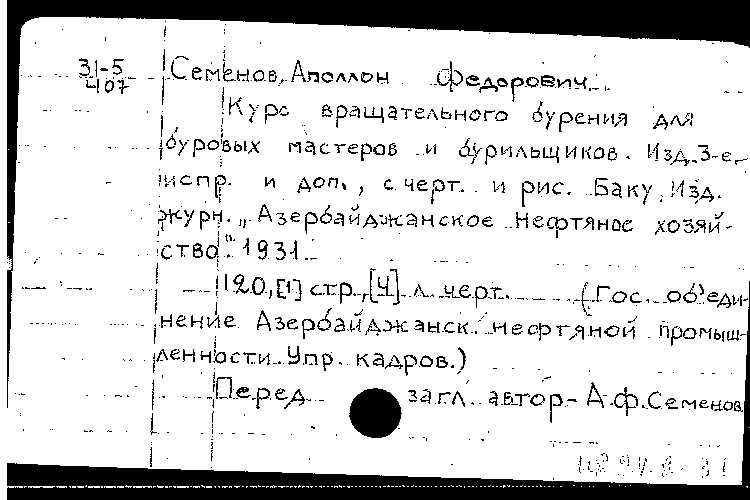 31-5
407
Семенов, Аполлон Федорович.
Курс вращательного бурения для
буровых мастеров и бурильщиков. Изд. 3-е,
испр. и доп., с черт. и рис. Баку, Изд.
журн. „Азербайджанское нефтяное хозяй-
ство". 1931.
120, [1] стр., [4] л. черт. (Гос. объеди-
нение Азербайджанск. нефтяной промыш-
ленности. Упр. кадров.)
Перед загл. автор - А.Ф. Семенов